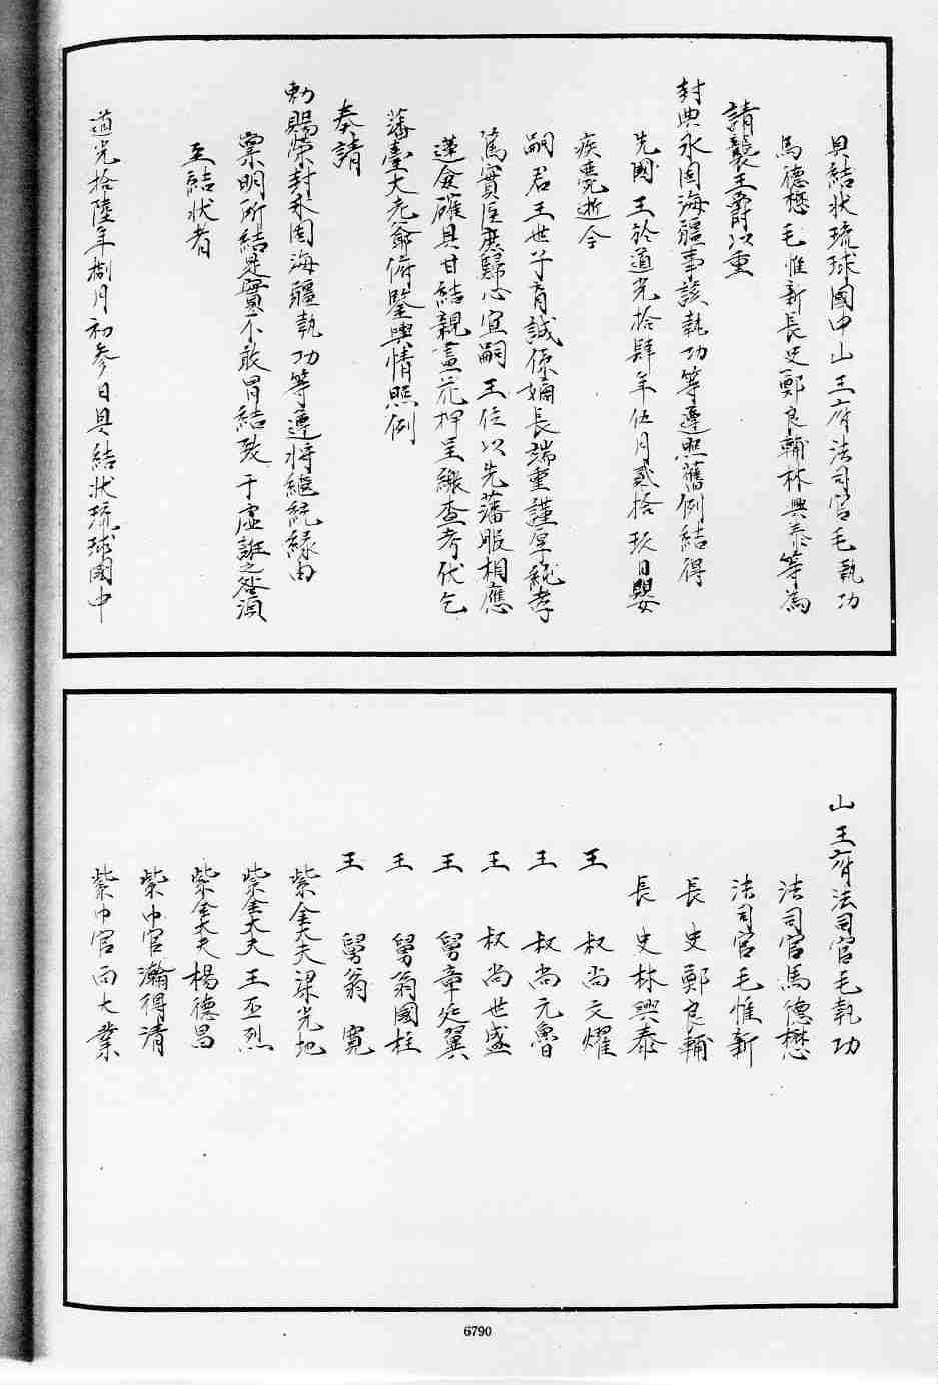 具結狀琉球國中山王府法司官毛執功
馬德懋毛惟新長史鄭良輔林興泰等為
請襲王爵以重
封典永固海疆事該執功等遵照舊例結得
先國王於道光拾肆年伍月貳拾玖日嬰
疾薨逝今
嗣君王世子育誠係嫡長端重謹厚純孝
篤實臣庶歸心宜嗣王位以先藩服相應
遵僉確具甘結親畫花押呈繳查考伏乞
藩臺大老爺俯鑒輿情照例
奉請
勅賜榮封永固海疆執功等遵將繼統緣由
稟明所結是實不敢冒結致于虛誑之咎須
至結狀者
道光拾陸年捌月初參日具結狀琉球國中
山王府法司官毛執功
法司官馬德懋
法司官毛惟新
長史鄭良輔
長史林興泰
王叔尚元耀
王叔尚元魯
王叔尚世盛
王舅章延翼
王舅翁國柱
王舅翁寬
紫金大夫梁光地
紫金大夫王丕烈
紫金大夫楊德昌
紫巾官瀚得清
紫巾官向大業
6790